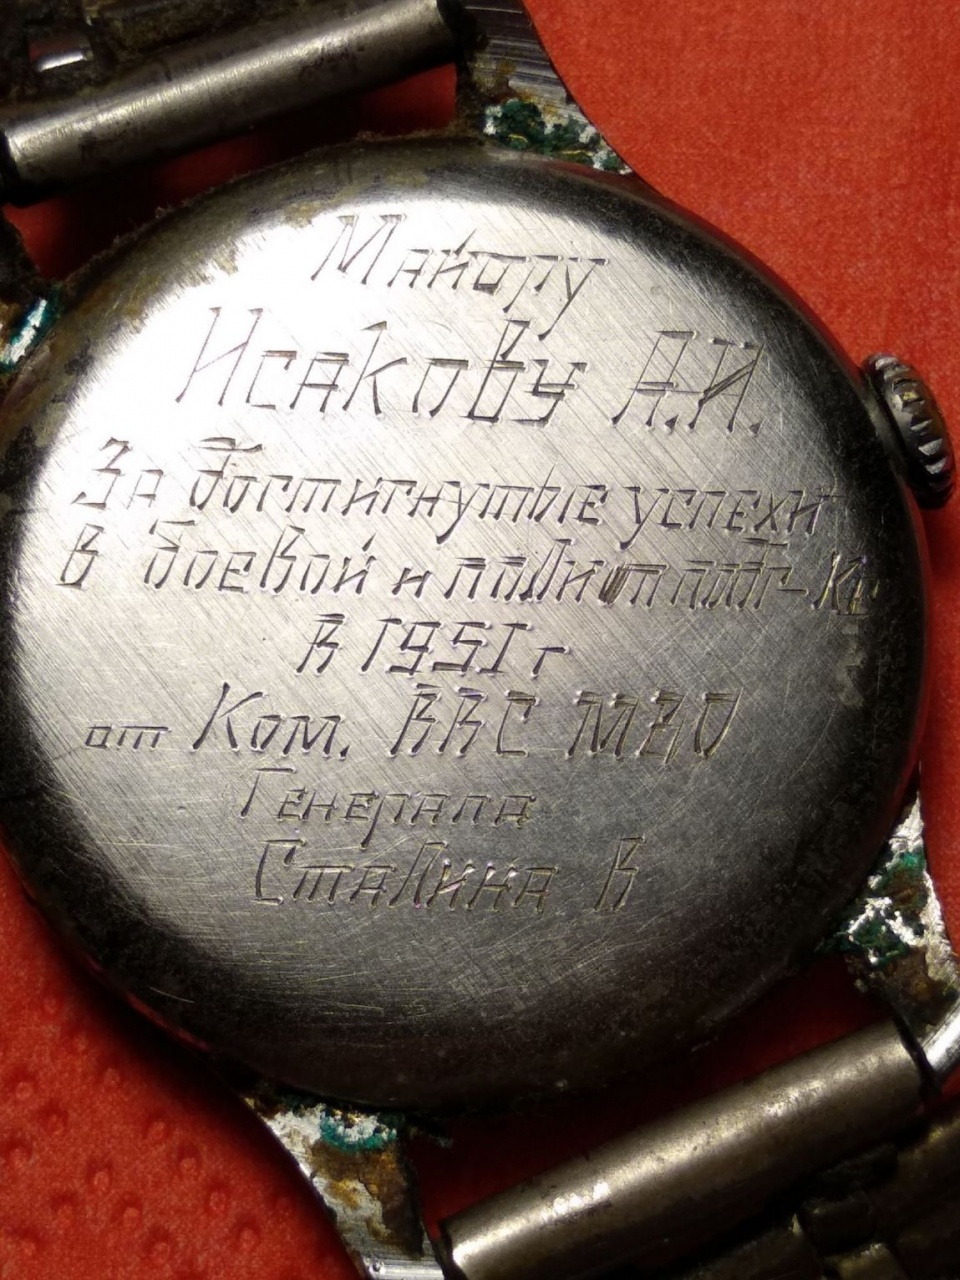 Майору
Исакову А.И.
За достигнутые успехи
в боевой и полит подг-ке
в 1951 г
от Ком. ВВС МВО
Генерала
Сталина В